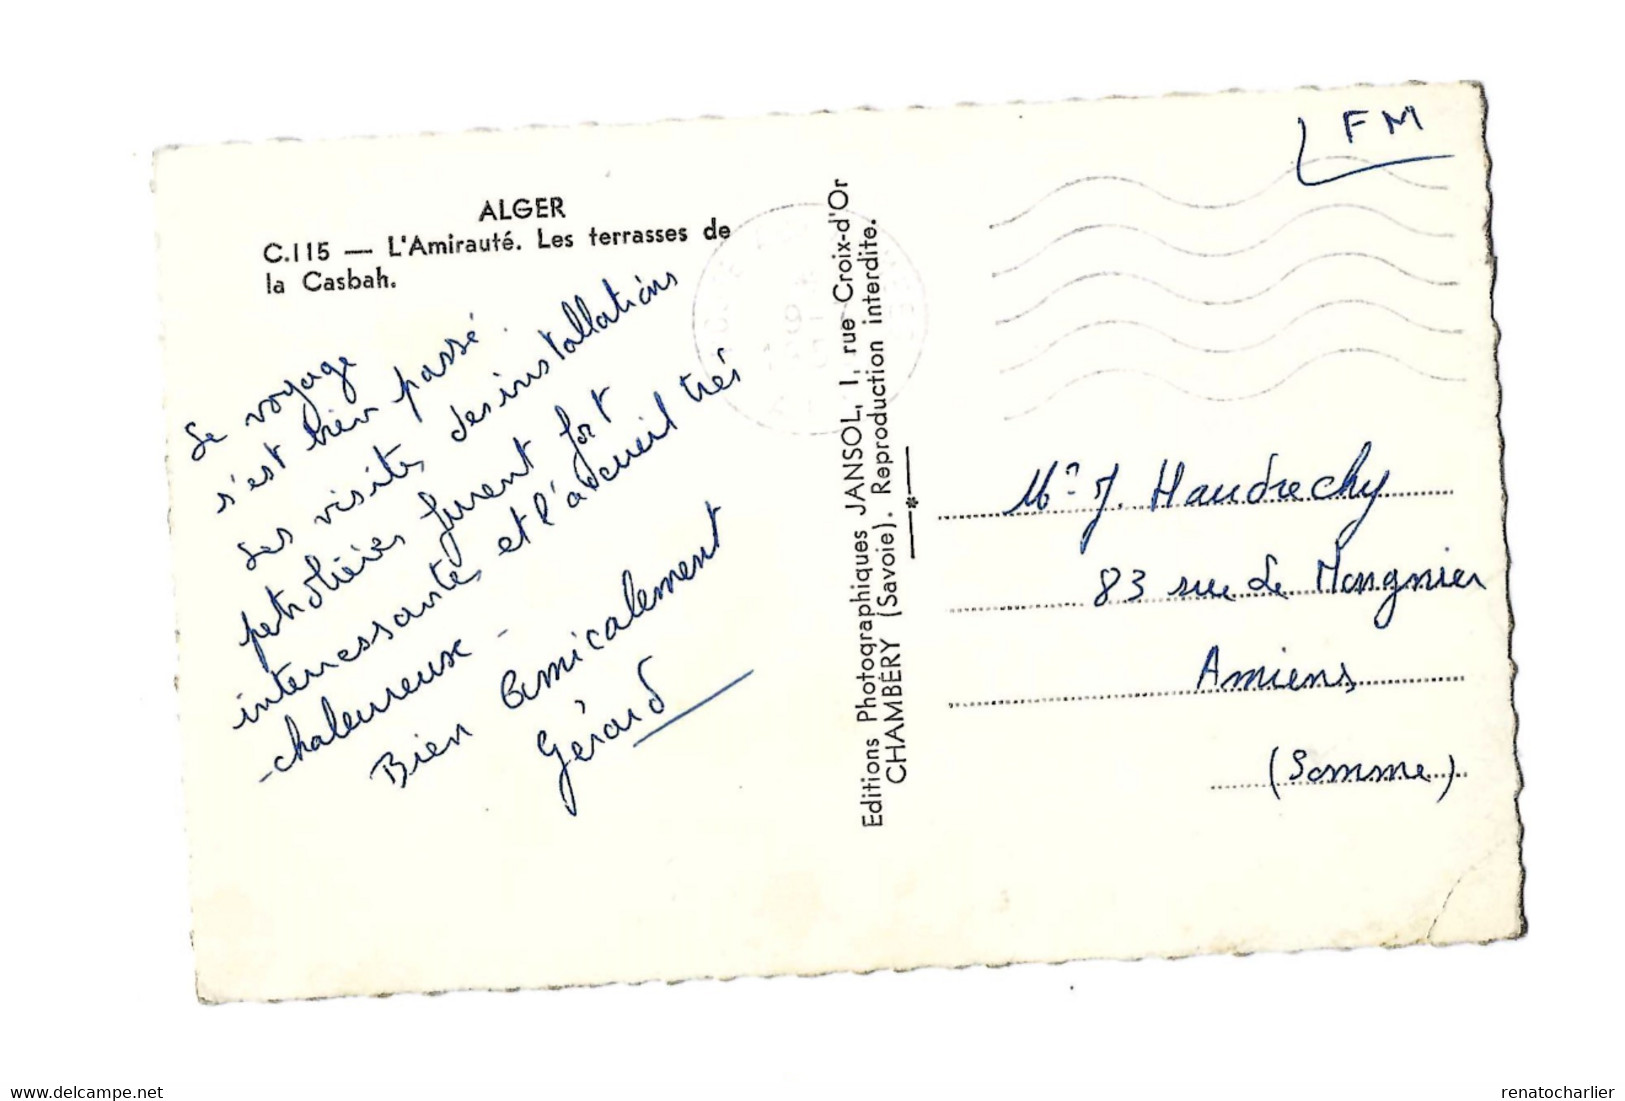 ALGER
C.115 — L'Amirauté. Les terrasses de
la Casbah.
Le voyage
s'est bien passé.
Les visites des installations
petrolières furent fort
interressantes et l'accueil très
chaleureuse -
Bien amicalement
Gérard
Editions Photographiques JANSOL, 1, rue Croix-d'Or
CHAMBÉRY (Savoie). Reproduction interdite.
FM
Mr J. Haudrechy
83 rue Le Mongnier
Amiens
(Somme)
www.delcampe.net
renatocharlier